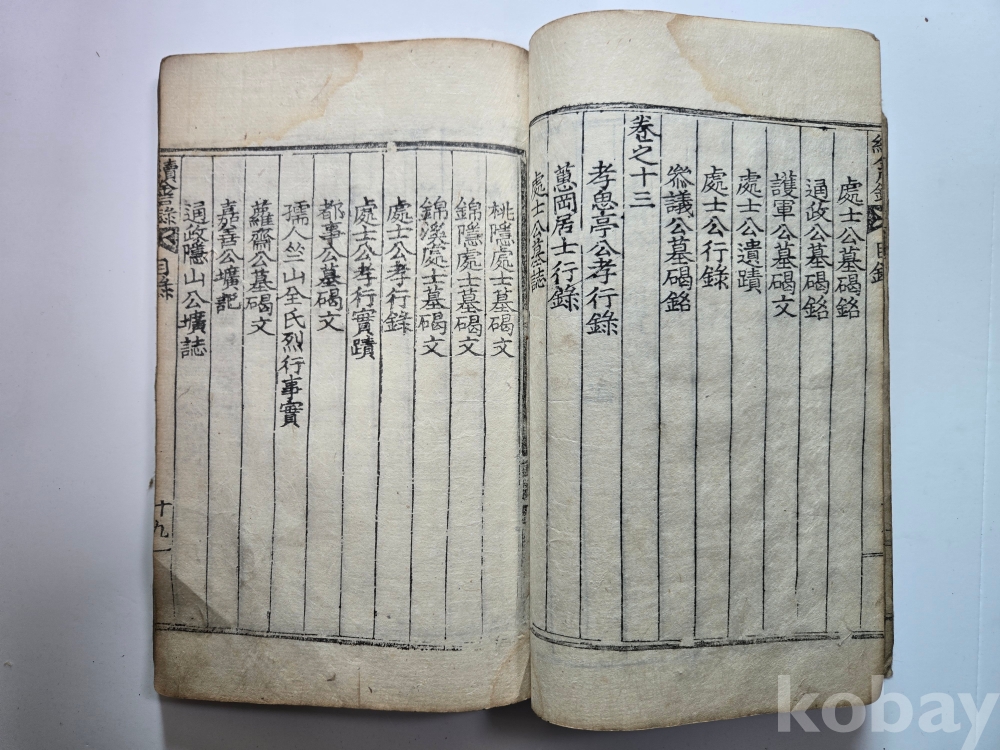 處士公墓碣銘
通政公墓碣銘
護軍公墓碣文
處士公遺蹟
處士公行錄
叅議公墓碣銘
卷之十三
孝思亭公孝行錄
蕙岡居士行錄
處士公墓誌
桃隱處士墓碣文
錦隱處士墓碣文
錦溪處士墓碣文
處士公孝行錄
處士公孝行實蹟
都事公墓碣文
孺人竺山全氏烈行事實
蘿齋公墓碣文
嘉善公壙記
通政隱山公壙誌
目錄
十九
kobay